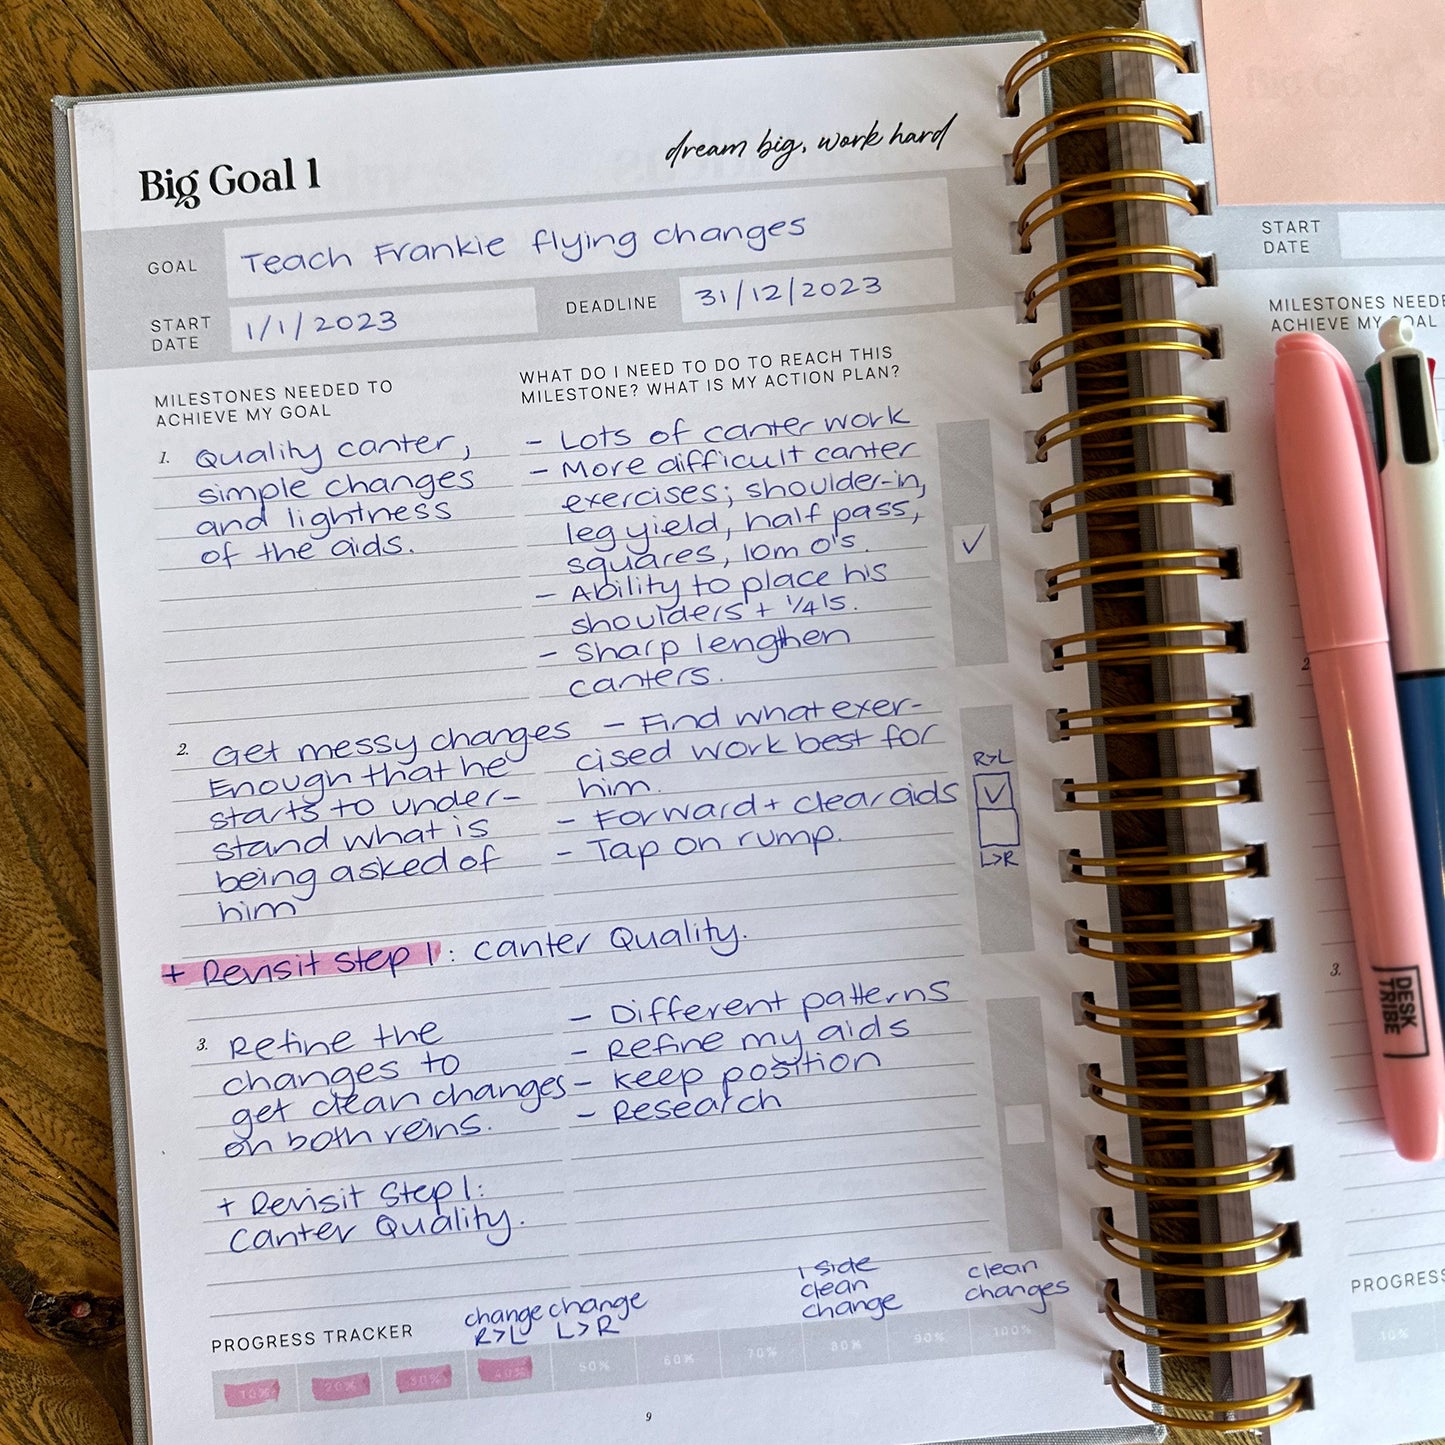 Big Goal 1
dream big, work hard
GOAL
Teach Frankie flying changes
START DATE
1/1/2023
DEADLINE
31/12/2023
MILESTONES NEEDED TO
ACHIEVE MY GOAL
WHAT DO I NEED TO DO TO REACH THIS
MILESTONE? WHAT IS MY ACTION PLAN?
1. Quality canter,
simple changes
and lightness
of the aids.
- Lots of canter work
- More difficult canter
exercises; shoulder-in,
leg yield, half pass,
squares, 10m O's.
- Ability to place his
shoulders + 1/4's.
- Sharp lengthen
canters.
✓
2. Get messy changes
Enough that he
starts to under-
stand what is
being asked of
him
- Find what exer-
cised work best for
him.
- Forward + clear aids
- Tap on rump.
R>L
✓
L>R
+ Revisit Step 1: Canter Quality.
3. Refine the
changes to
get clean changes
on both reins.
- Different patterns
- Refine my aids
- Keep position
- Research
+ Revisit Step 1:
Canter Quality.
PROGRESS TRACKER
change
R>L
change
L>R
1 side
clean
change
clean
changes
10% 20% 30% 40% 50% 60% 70% 80% 90% 100%
9
START
DATE
MILESTONES NEEDE
ACHIEVE MY GOAL
2.
3.
DESK
TRIBE
PROGRESS
10%